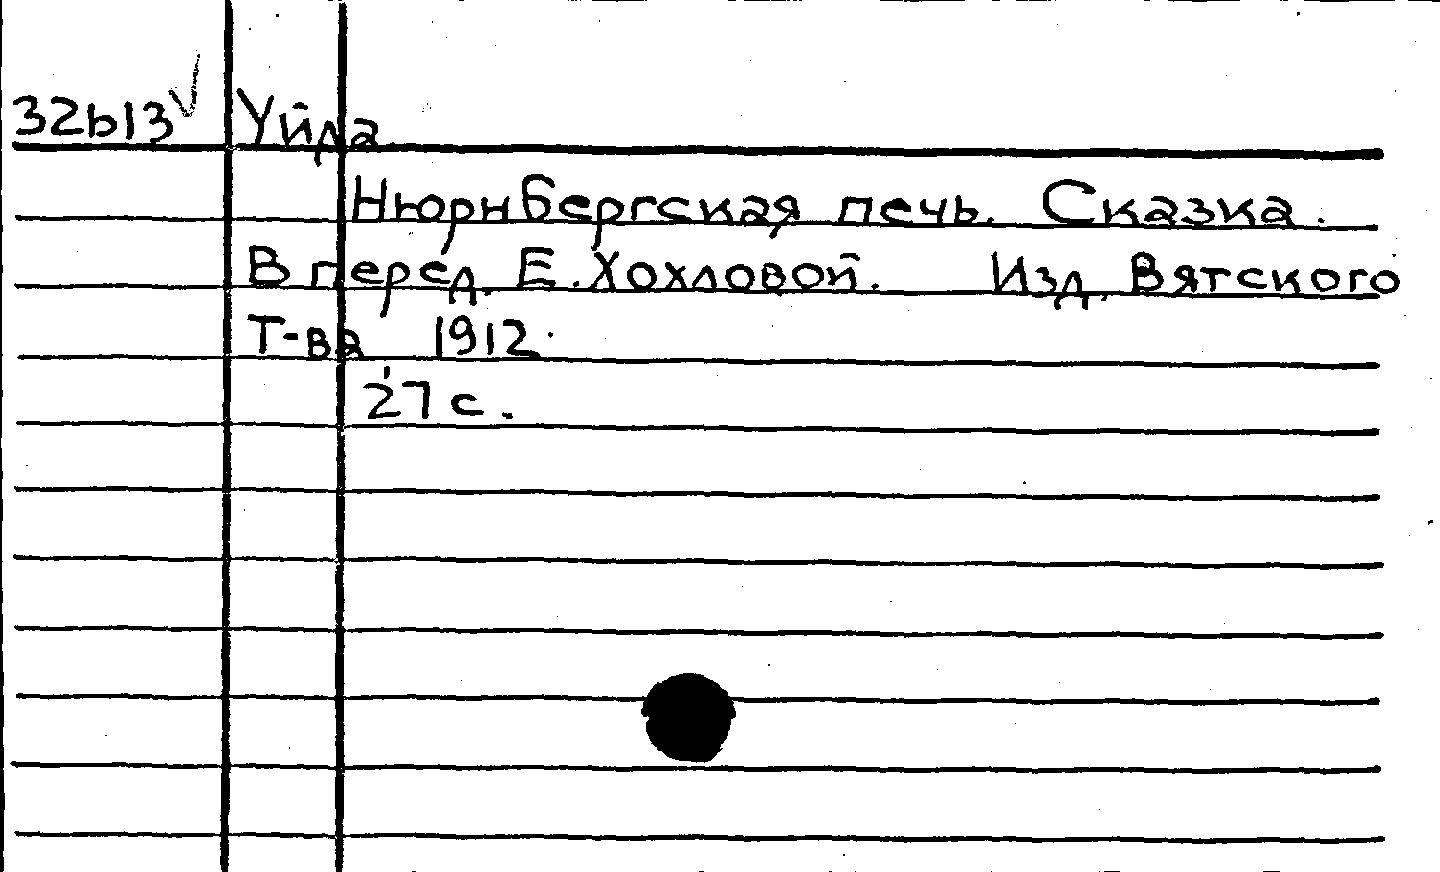 32b13 Уйда
Нюрнбергская печь. Сказка.
В перед. Е. Хохловой. Изд. Вятского
Т-ва 1912.
27 с.